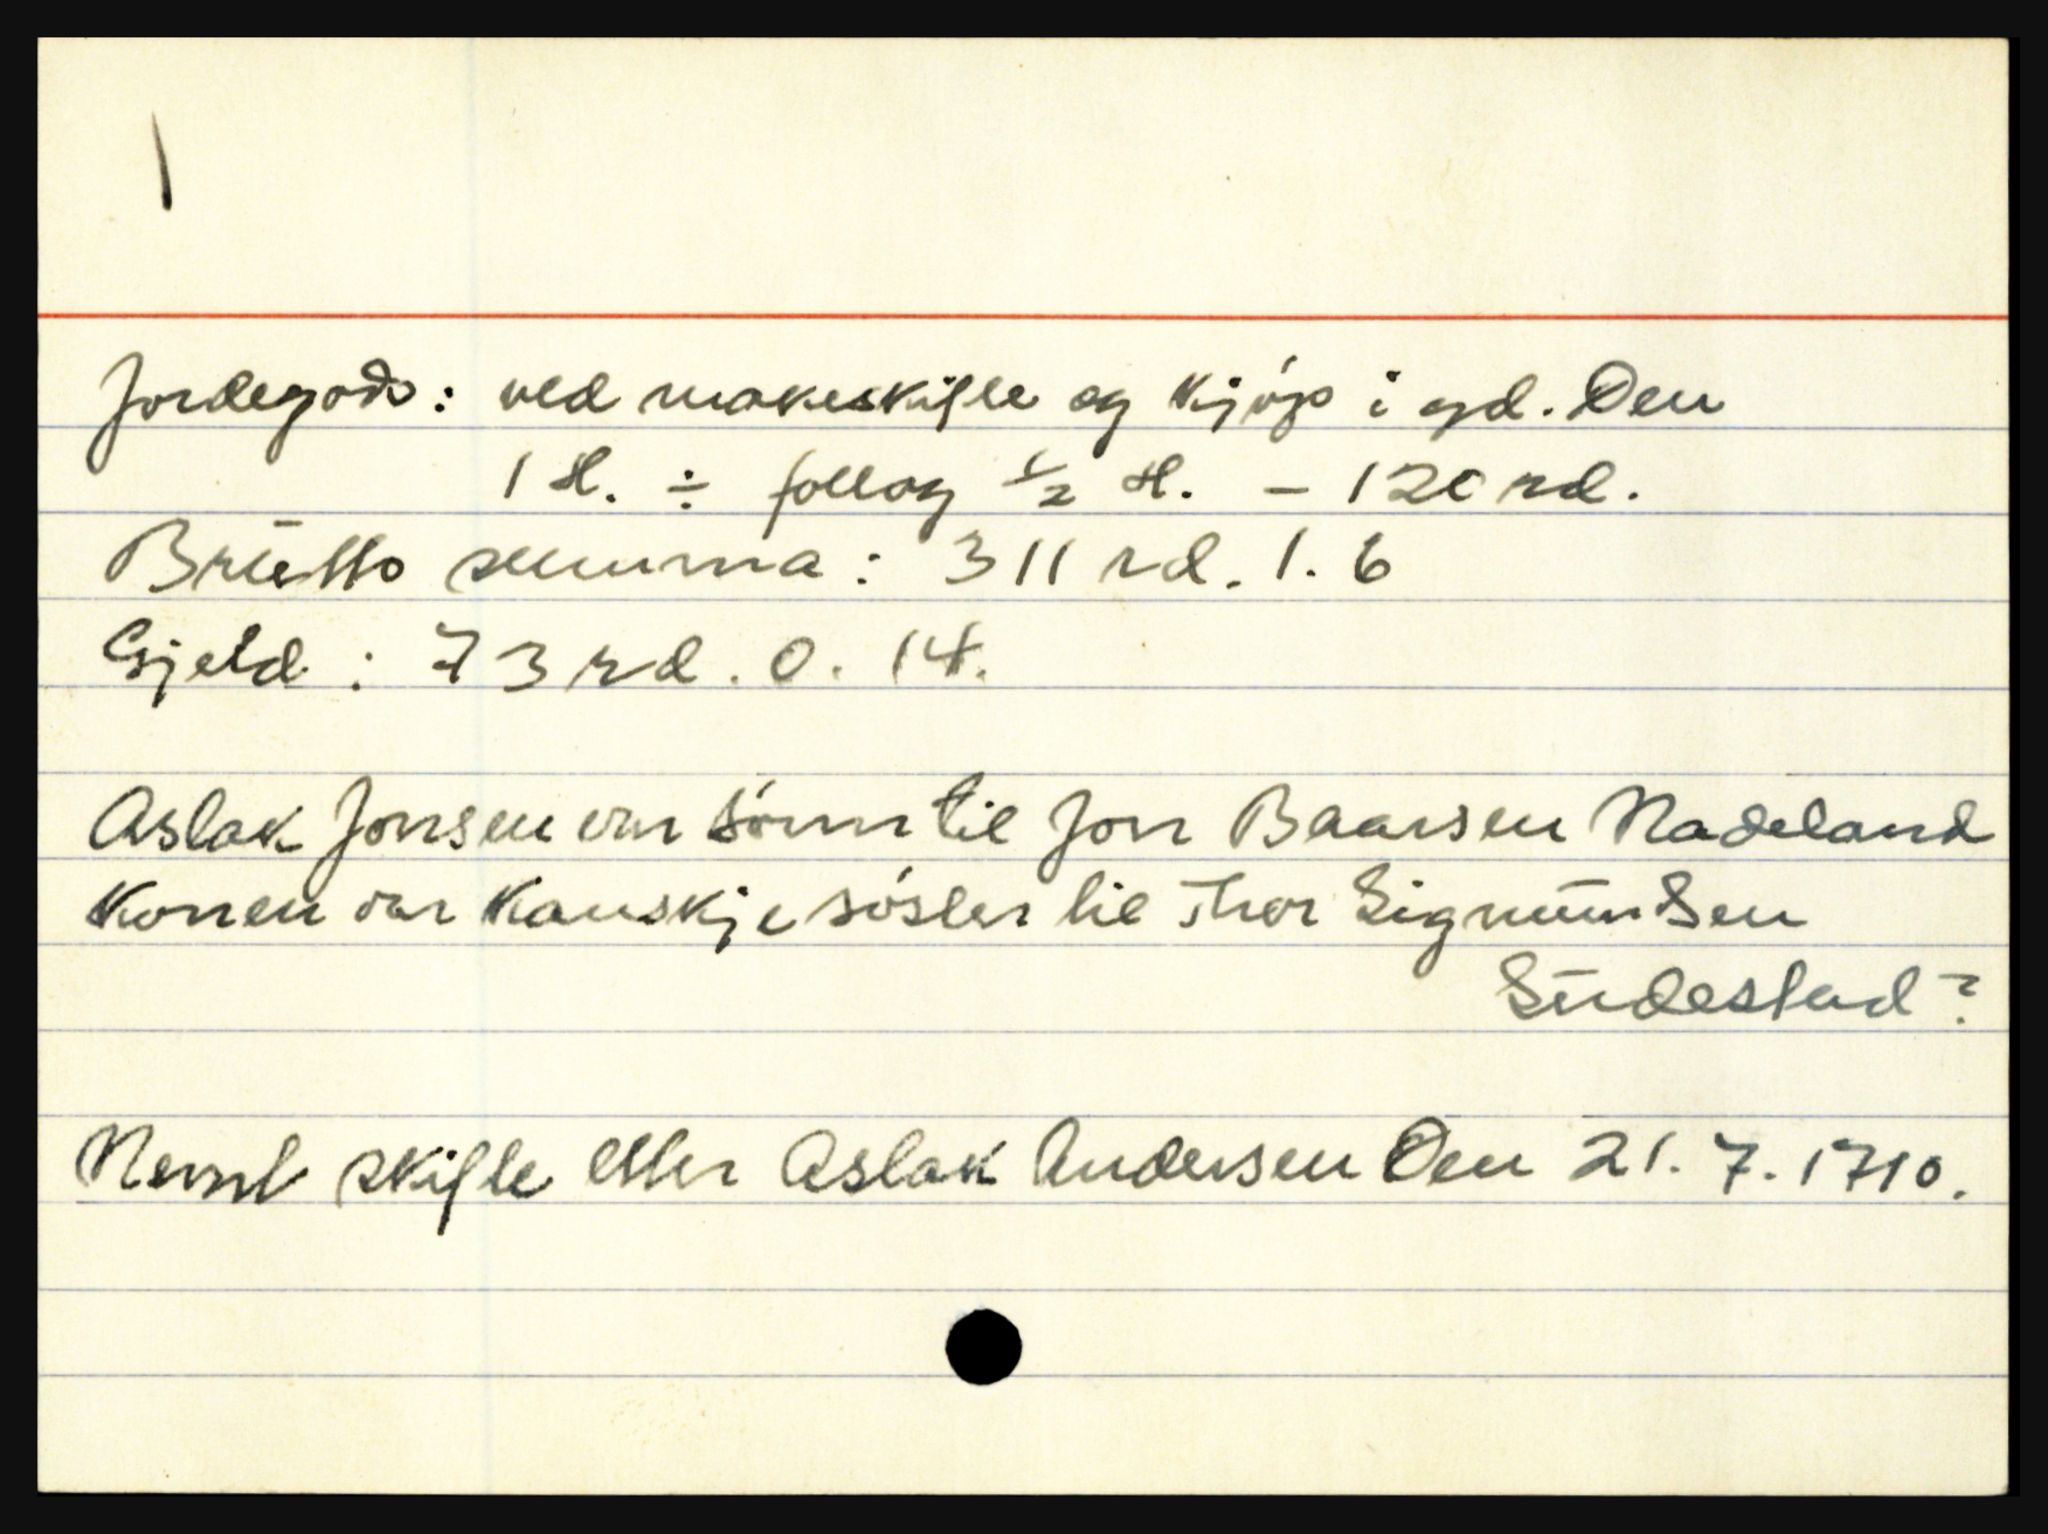 Jordegods: ved makeskifte og kjóp i gd. Den
1 H. ÷ follog 1/2 H. - 120 rd.
Brutto summa: 311 rd. 1. 6
Gjeld: 73 rd. 0. 14.
Aslak Jonsen var sónn til Jon Baarsen Nadeland
Konen var kanskje sóster til Thor Sigmundsen
Sudestad?
Nevnt skifte etter Aslak Andersen Den 21. 7. 1710.